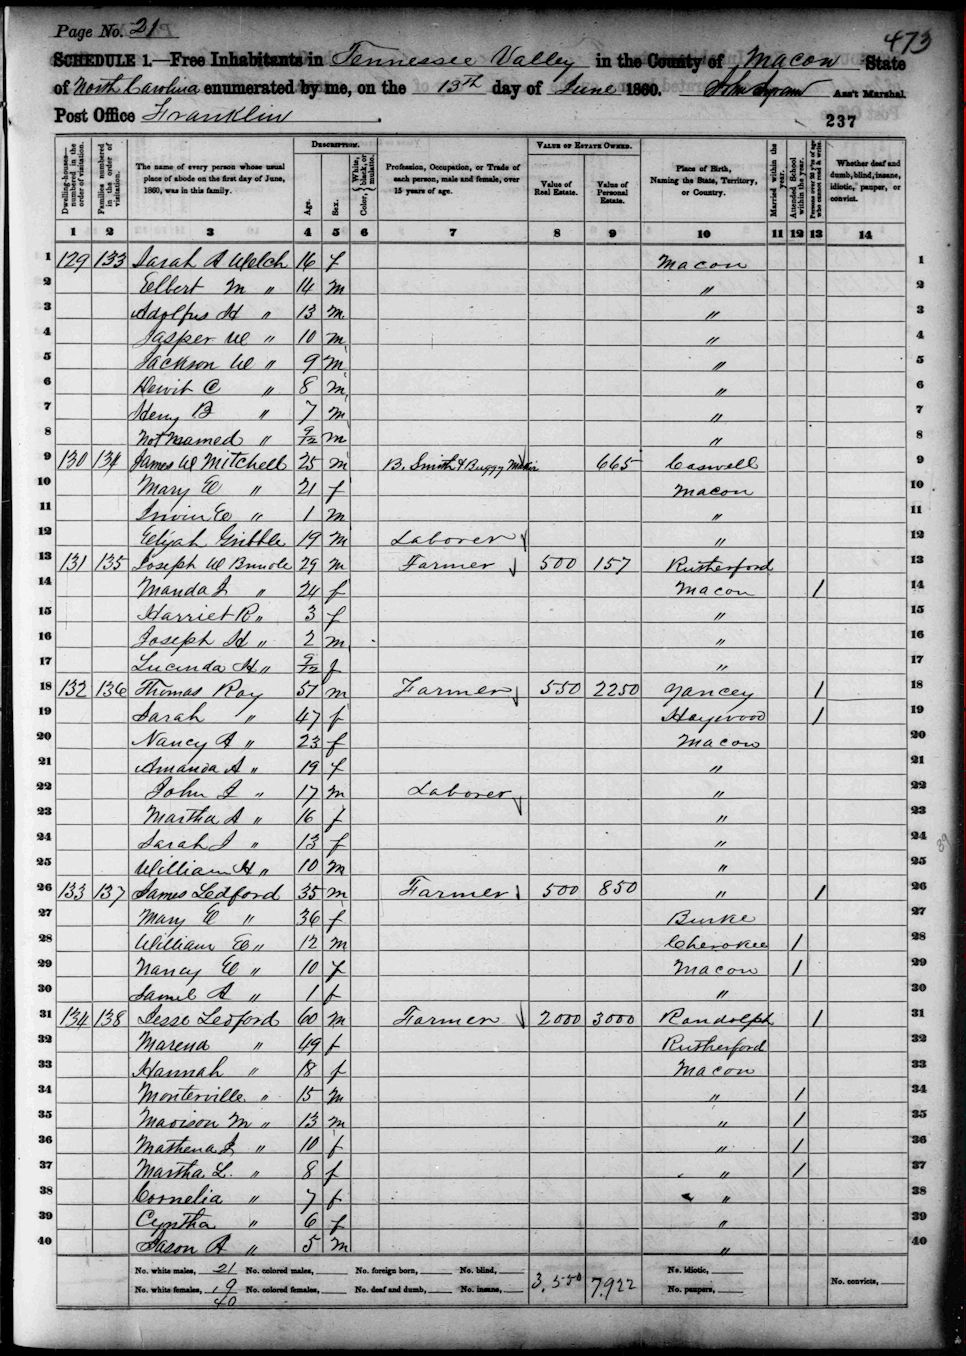 Page No. 21
473
SCHEDULE 1.—Free Inhabitants in Tennessee Valley in the County of Macon State
of North Carolina enumerated by me, on the 13th day of June 1860. Ass't Marshal.
Post Office Franklin
237
Dwelling-houses—numbered in the order of visitation.
Families numbered in the order of visitation.
The name of every person whose usual place of abode on the first day of June, 1860, was in this family.
DESCRIPTION.
Age.
Sex.
Color, White, black, or mulatto.
Profession, Occupation, or Trade of each person, male and female, over 15 years of age.
VALUE OF ESTATE OWNED.
Value of Real Estate.
Value of Personal Estate.
Place of Birth, Naming the State, Territory, or Country.
Married within the year.
Attended School within the year.
Persons over 20 y'rs of age who cannot read & write.
Whether deaf and dumb, blind, insane, idiotic, pauper, or convict.
1 2 3 4 5 6 7 8 9 10 11 12 13 14
1 129 133 Sarah A Welch 16 f Macon 1
2 Elbert M " 14 m " 2
3 Adolfus H " 13 m " 3
4 Jasper W " 10 m " 4
5 Jackson W " 9 m " 5
6 Dewit C " 8 m " 6
7 Henry B " 7 m " 7
8 Not named " 9/12 m " 8
9 130 134 James W Mitchell 25 m B. Smith & Buggy Maker 665 Caswell 9
10 Mary E " 21 f Macon 10
11 Irvin E " 1 m " 11
12 Elijah Gribble 19 m Laborer " 12
13 131 135 Joseph W 29 m Farmer 500 157 Rutherford 13
14 Manda J " 24 f Macon 1 14
15 Harriet R " 3 f " 15
16 Joseph H " 2 m " 16
17 Lucinda H " 9/12 f " 17
18 132 136 Thomas Ray 51 m Farmer 550 2250 Yancey 1 18
19 Sarah " 47 f Haywood 1 19
20 Nancy A " 23 f Macon 20
21 Amanda A " 19 f " 21
22 John J " 17 m Laborer " 22
23 Martha S " 16 f " 23
24 Sarah J " 13 f " 24
25 William H " 10 m " 25
26 133 137 James Ledford 35 m Farmer 500 850 " 1 26
27 Mary E " 36 f Burke 27
28 William E " 12 m Cherokee 1 28
29 Nancy E " 10 f Macon 1 29
30 A " 1 f " 30
31 134 138 Jesse Ledford 60 m Farmer 2000 3000 Randolph 1 31
32 Marena " 49 f Rutherford 32
33 Hannah " 18 f Macon 33
34 Monterville " 15 m " 1 34
35 Madison M " 13 m " 1 35
36 Mathena J " 10 f " 1 36
37 Martha L. " 8 f " 1 37
38 Cornelia " 7 f " 38
39 Cyntha " 6 f " 39
40 Jason A " 5 m " 40
No. white males, 21 No. colored males, No. foreign born, No. blind, 3,550 7,922 No. idiotic, No. convicts,
No. white females, 19 No. colored females, No. deaf and dumb, No. insane, No. paupers,
40
89